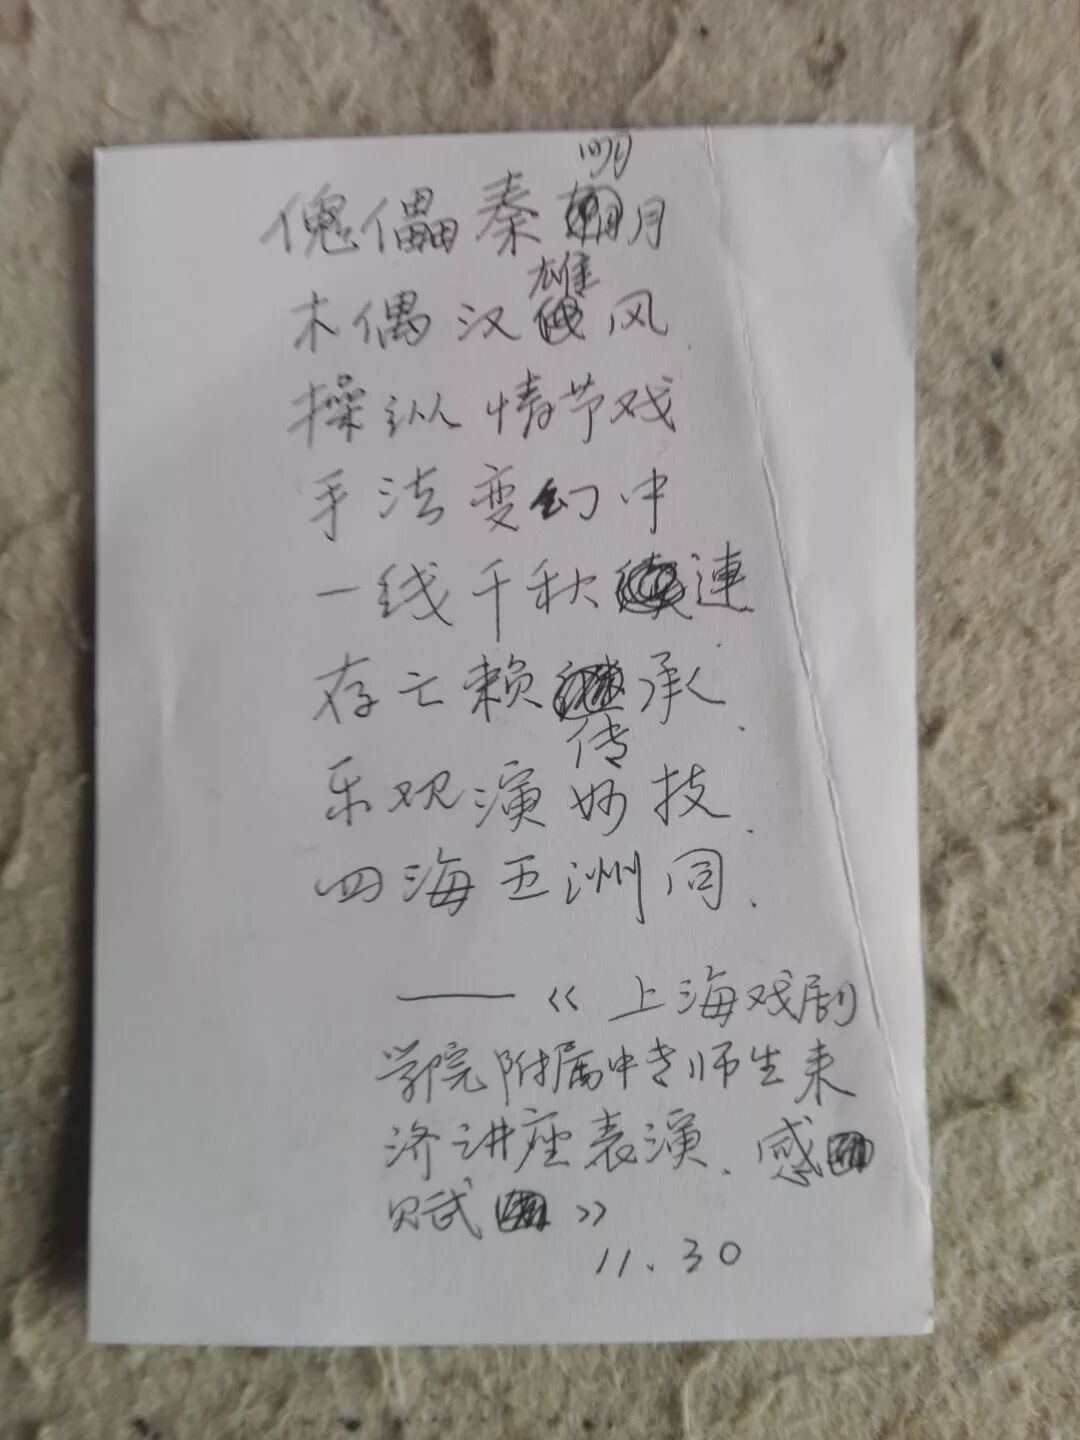 傀儡秦明月
木偶汉雄风
操纵情节戏
手法变幻中
一线千秋連
存亡赖传承.
乐观演妙技.
四海五洲同.
——《上海戏剧
学院附属中专师生来
济讲座表演、感
赋》
11.30